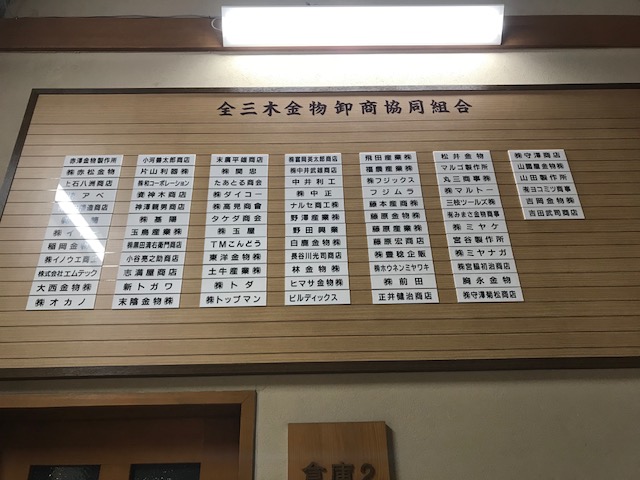 全三木金物卸商協同組合
赤澤金物製作所
㈱赤松金物
上石八洲商店
稲岡金
㈱イノウエ商
株式会社エムテック
大西金物㈱
㈱オカノ
小河善太郎商店
片山利器㈱
㈱和コーポレーション
神澤親男商店
㈱基陽
玉鳥産業㈱
㈱黒田清右衛門商店
小谷晃之助商店
志満屋商店
新トガワ
末陰金物㈱
末廣平雄商店
㈱関忠
たあとる商会
㈱ダイコー
㈱高晃商會
タケダ商会
㈱玉屋
TMこんどう
東洋金物㈱
土牛産業㈱
㈱トダ
㈱トップマン
㈱富岡英太郎商店
㈱中井武雄商店
中井利工
㈱中正
ナルセ商工㈱
野澤産業㈱
野田興業
白鹿金物㈱
長谷川光司商店
林金物㈱
ヒマサ金物㈱
ビルディックス
飛田産業㈱
福農産業㈱
㈱フジックス
フジムラ
藤本産商㈱
藤原金物㈱
藤原産業㈱
藤原宏商店
㈱豊稔企販
㈱ホウネンミヤワキ
㈱前田
正井健治商店
松井金物
マルゴ製作所
丸三商事㈱
㈱マルトー
三枝ツールズ㈱
㈲みまさ金物商事
㈱ミヤケ
宮谷製作所
㈱ミヤナガ
㈱宮脇初治商店
胸永金物
㈱守澤菊松商店
㈱守澤商店
山田製作所
㈲ヨコミツ商事
吉岡金物㈱
吉田武司商店
倉庫2